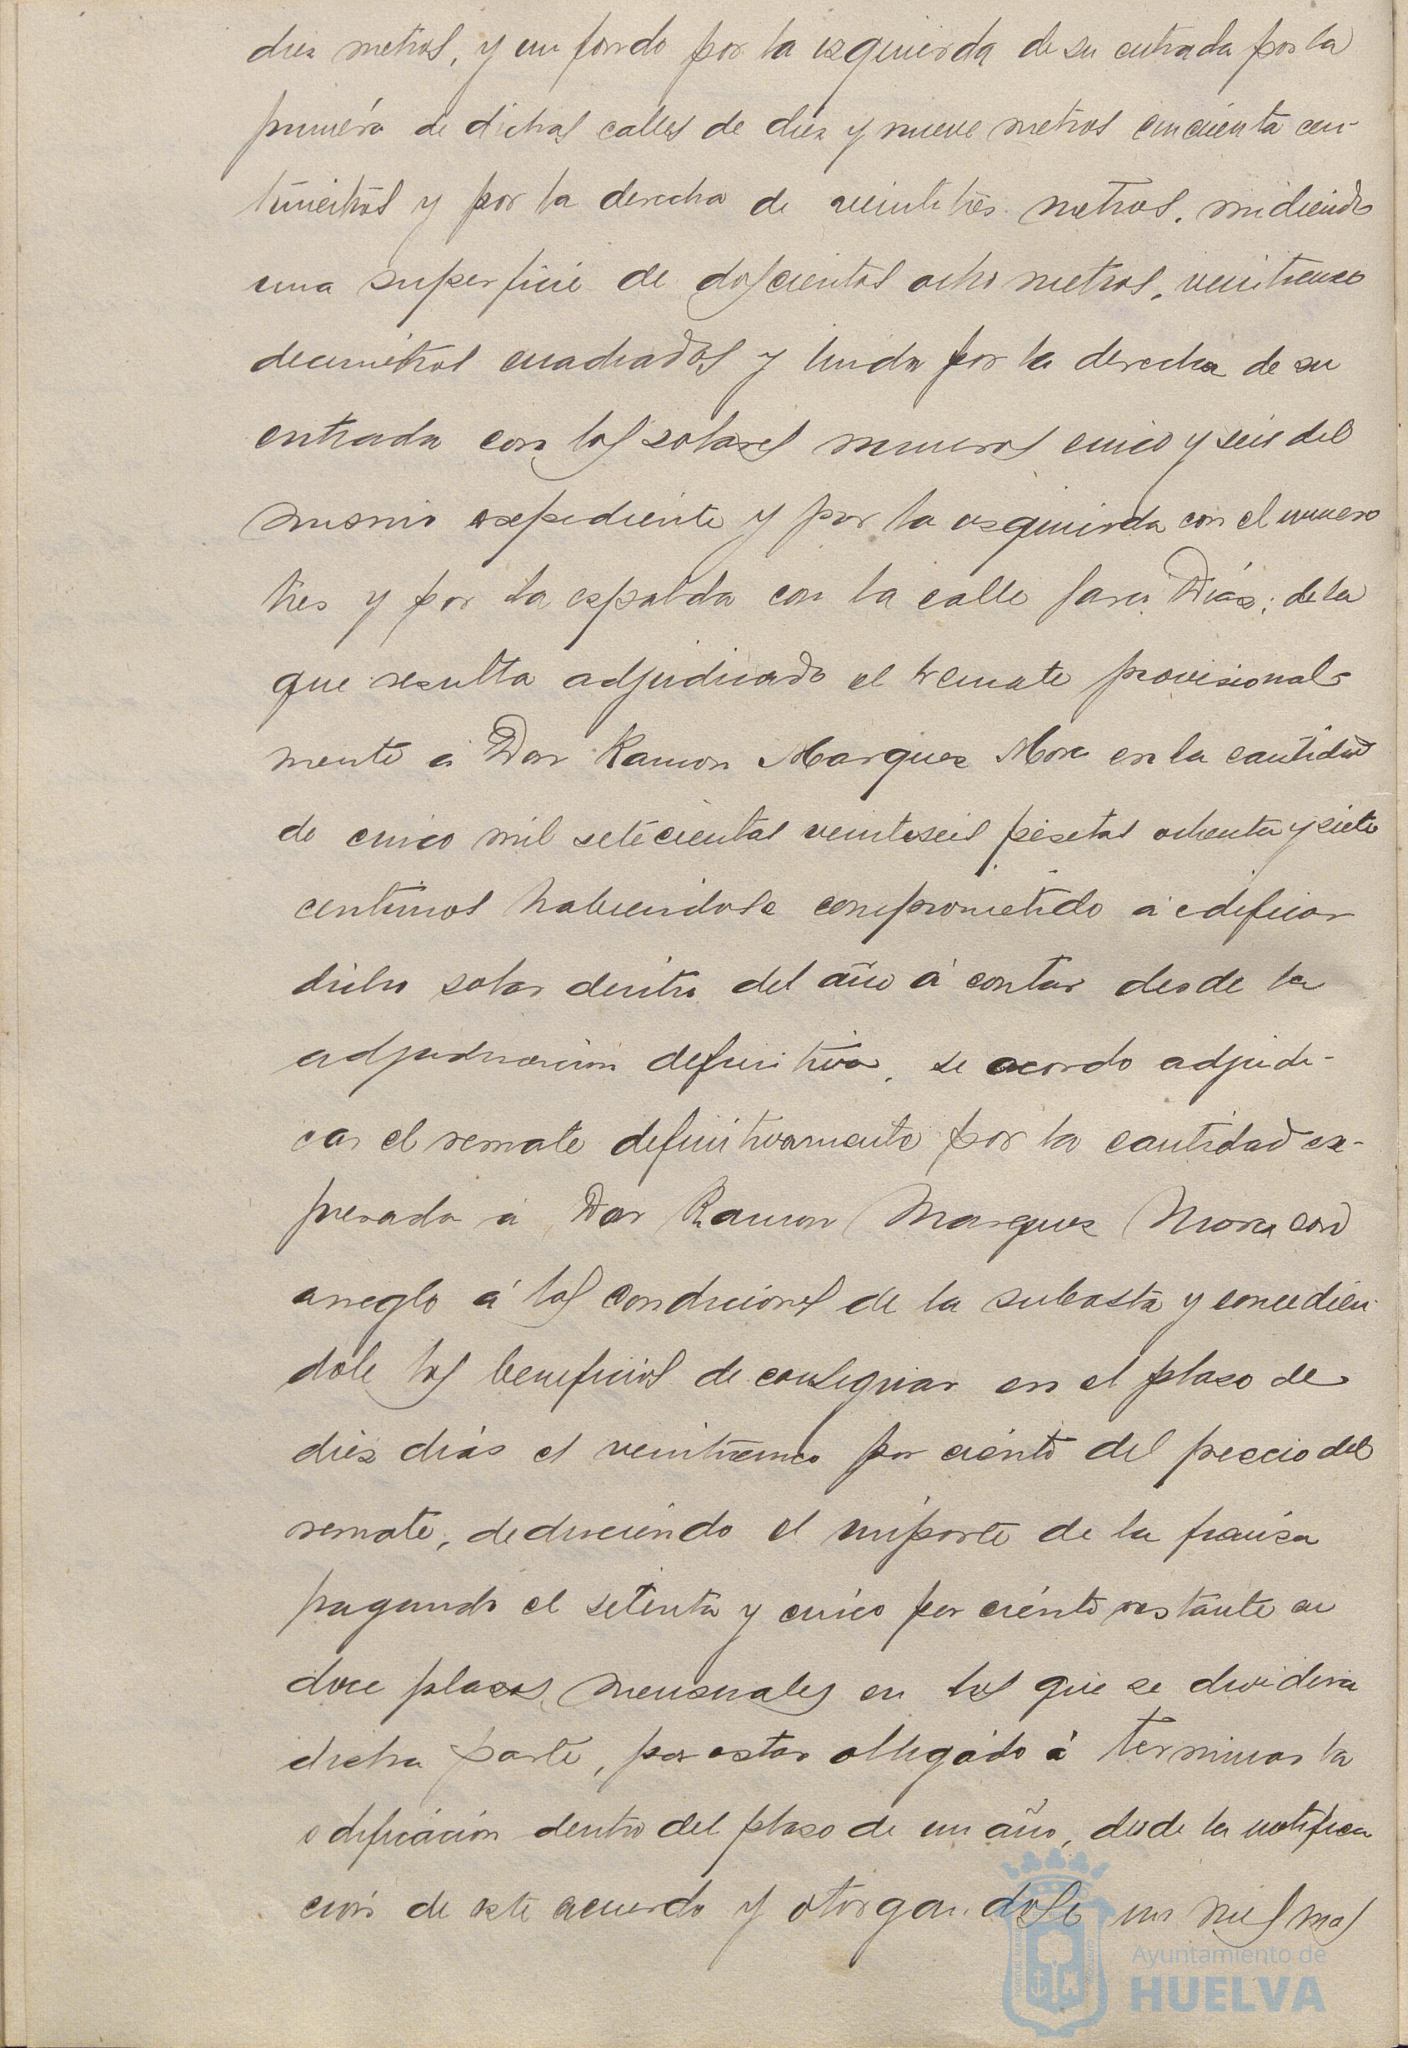 diez metros, y un fondo por la izquierda de su entrada por la
primera de dichas calles de diez y nueve metros cincuenta cen-
timetros y por la derecha de veintitres metros, midiendo
una superficie de doscientos ocho metros, veinticinco
decimetros cuadrados y linda por la derecha de su
entrada con los solares numeros cinco y seis del
mismo expediente y por la izquierda con el numero
tres y por la espalda con la calle Isaac Díaz; de la
que resulta adjudicado el remate provisional-
mente á Don Ramon Marquez Mora en la cantidad
de cinco mil setecientas veintiseis pesetas ochenta y siete
centimos habiendose comprometido á edificar
dicho solar dentro del año á contar desde la
adjudicacion definitiva, se acordo adjudi-
car el remate definitivamente por la cantidad ex-
presada á Don Ramon Marquez Mora con
arreglo á las condiciones de la subasta y concedien-
dole los beneficios de consignar en el plazo de
diez dias el veinticinco por ciento del precio del
remate, deduciendo el importe de la fianza
pagando el setenta y cinco por ciento restante en
doce plazos mensuales en los que se dividirá
dicha parte, por estar obligado á terminar la
edificación dentro del plazo de un año, desde la notifica
ción de este acuerdo y otorgandole un mes mas
Ayuntamiento de
HUELVA